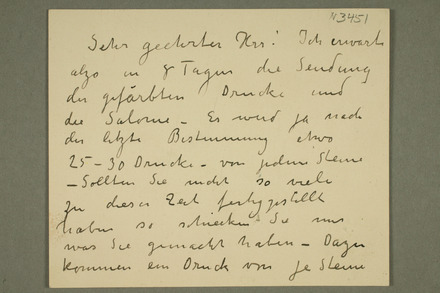 N3451
Sehr geehrter Herr! Ich erwarte
also in 8 Tagen die Sendung
der gefärbten Drucke und
die Salome – Es wird ja nach
der letzte Bestimmung etwa
25–30 Drucke – von jedem Steine
– Sollten Sie nicht so viele
zu dieser Zeit fertiggestellt
haben so schicken Sie mir
was Sie gemacht haben – Dazu
kommen ein Druck von je Steine